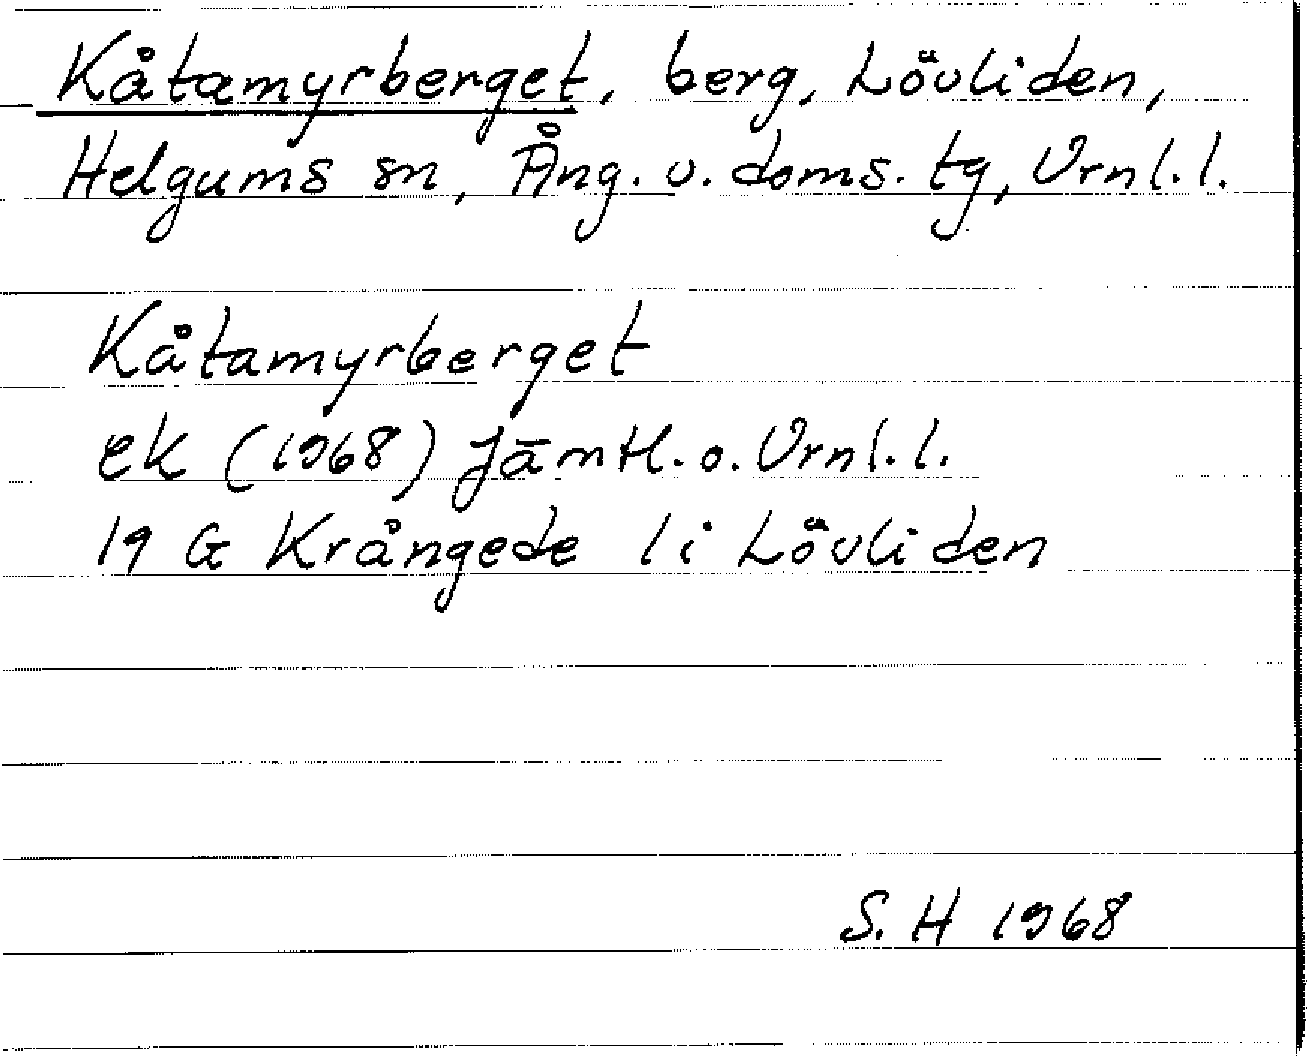 Kåtamyrberget, berg, Lövliden,
Helgums sn, Ång. v. doms. tg, Vrnl. l.
Kåtamyrberget
ek (1968) Jämtl. o. Vrnl. l.
19 G Krångede l i Lövliden
S. H 1968